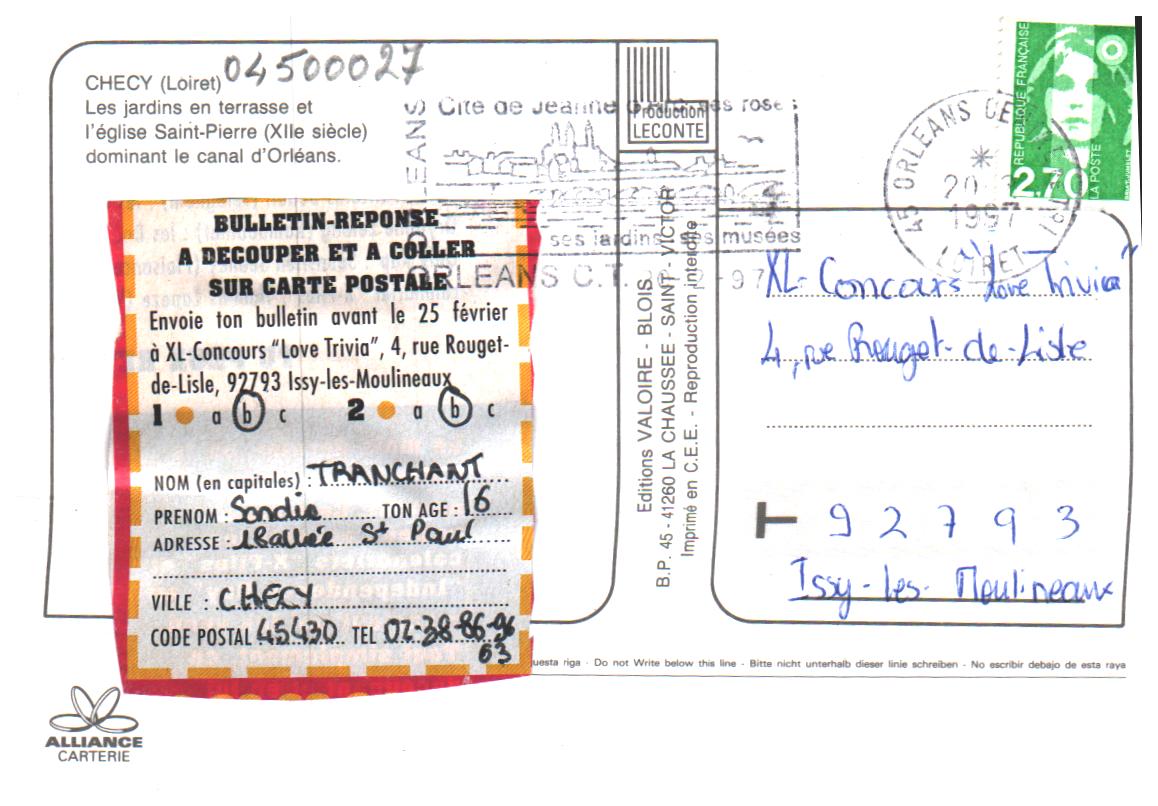 CHECY (Loiret) 04500027
Les jardins en terrasse et
l'église Saint-Pierre (XIIe siècle)
dominant le canal d'Orléans.
BULLETIN-REPONSE
A DECOUPER ET A COLLER
SUR CARTE POSTALE
Envoie ton bulletin avant le 25 février
à XL-Concours "Love Trivia", 4, rue Rouget-
de-Lisle, 92793 Issy-les-Moulineaux
1 a b c 2 a b c
NOM (en capitales) : TRANCHANT
PRENOM : Sandie TON AGE : 16
ADRESSE : St Paul
VILLE : CHECY
CODE POSTAL 45430 TEL 02-38-86-96
63
ALLIANCE
CARTERIE
Production
LECONTE
Cité de Jeanne d'Arc, ses roses
ses jardins, ses musées
ORLEANS C.T.
Editions VALOIRE - BLOIS
B.P. 45 - 41260 LA CHAUSSEE - SAINT - VICTOR
Imprimé en C.E.E. - Reproduction interdite
45 ORLEANS
1997
LOIRET
REPUBLIQUE FRANÇAISE
2,70
LA POSTE
XL-Concours "Love Trivia"
4, rue Rouget-de-Lisle
92793
Issy-les-Moulineaux
questa riga - Do not Write below this line - Bitte nicht unterhalb dieser linie schreiben - No escribir debajo de esta raya